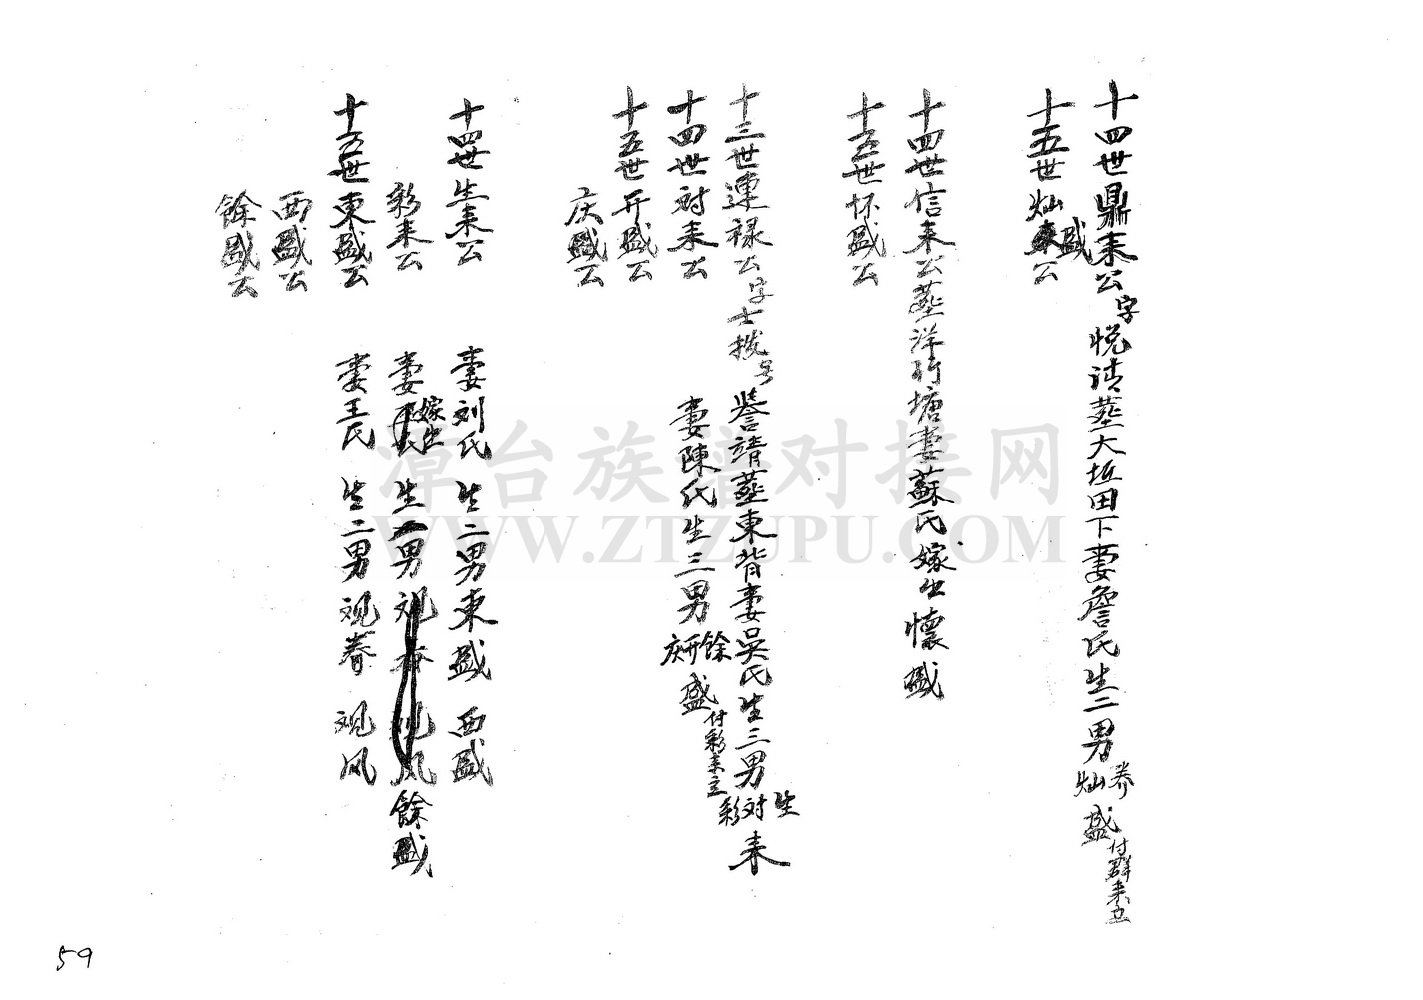 十四世鼎来公字悦诗葬大坵田下妻詹氏生二男养灿盛付群来立
十五世灿盛公
十四世信来公葬洋竹塘妻蘇氏嫁出懷盛
十五世怀盛公
十三世連禄公字士拔号誉靖葬東背妻吳氏生三男生对彩来
十四世对来公 妻陳氏生三男餘开庆盛付彩来立
十五世开盛公
庆盛公
十四世生来公 妻刘氏 生二男東盛 西盛
彩来公 妻 氏嫁出 生一男 餘盛
十五世東盛公 妻王氏 生二男观春 观风
西盛公
餘盛公
漳台族谱对接网
WWW.ZTZUPU.COM
59